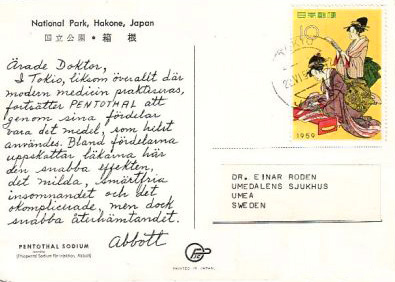 National Park, Hakone, Japan
国立公園・箱根
Ärade Doktor,
I Tokio, liksom överallt där
modern medicin praktiseras,
fortsätter PENTOTHAL att
genom sina fördelar
vara det medel, som helst
användes. Bland fördelarna
uppskattar läkarna här
den snabba effekten,
det milda, smärtfria
insomnandet och det
okomplicerade, men dock
snabba återhämtandet.
Abbott
PENTOTHAL SODIUM
(Thiopental Sodium for Injection, Abbott)
PRINTED IN JAPAN
日本郵便
10
1959
DR. EINAR RODEN
UMEDALENS SJUKHUS
UMEA
SWEDEN